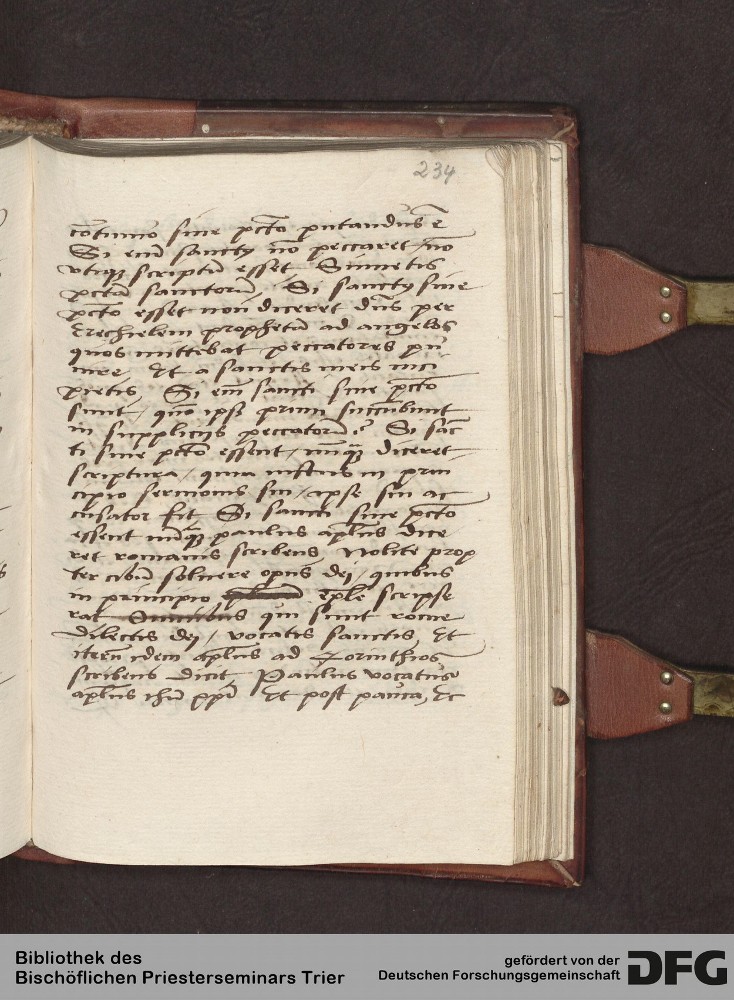 234
cōtinuo sine pctō putandus ē
Si enī sanctꝰ nō peccaret / nō
utiqꝫ scriptū esset Si inietis
pctā sanctorū. Si sanctꝰ sine
pctō esset non diceret dn̄s per
Ezechielem prophetā ad angelos
quos mittebat peccatores pu
nire Et a sanctis meis inci
pietis, Si enī sancti sine pctō
sunt, quō ipsi primi succūbunt
in supplicijs peccatorū? Si sāc
ti sine pctō essent / nūqꝫ diceret
scriptura / quia iustus in prin
cipio sermonis sui / ipse sui ac
cusator fit Si sancti sine pctō
essent nūqꝫ paulus apl̄us dice
ret romanis scribens, Nolite prop
ter cibū soluere opus dei / quibus
in principio eplē scripse
rat Omnibus qui sunt rome
dilectis dei / vocatis sanctis, Et
iterū idem apl̄us ad Corinthios
scribens dicit Paulus vocatus
apl̄us ihū xp̄i Et post pauca, Ec
Bibliothek des
Bischöflichen Priesterseminars Trier
gefördert von der
Deutschen Forschungsgemeinschaft
DFG